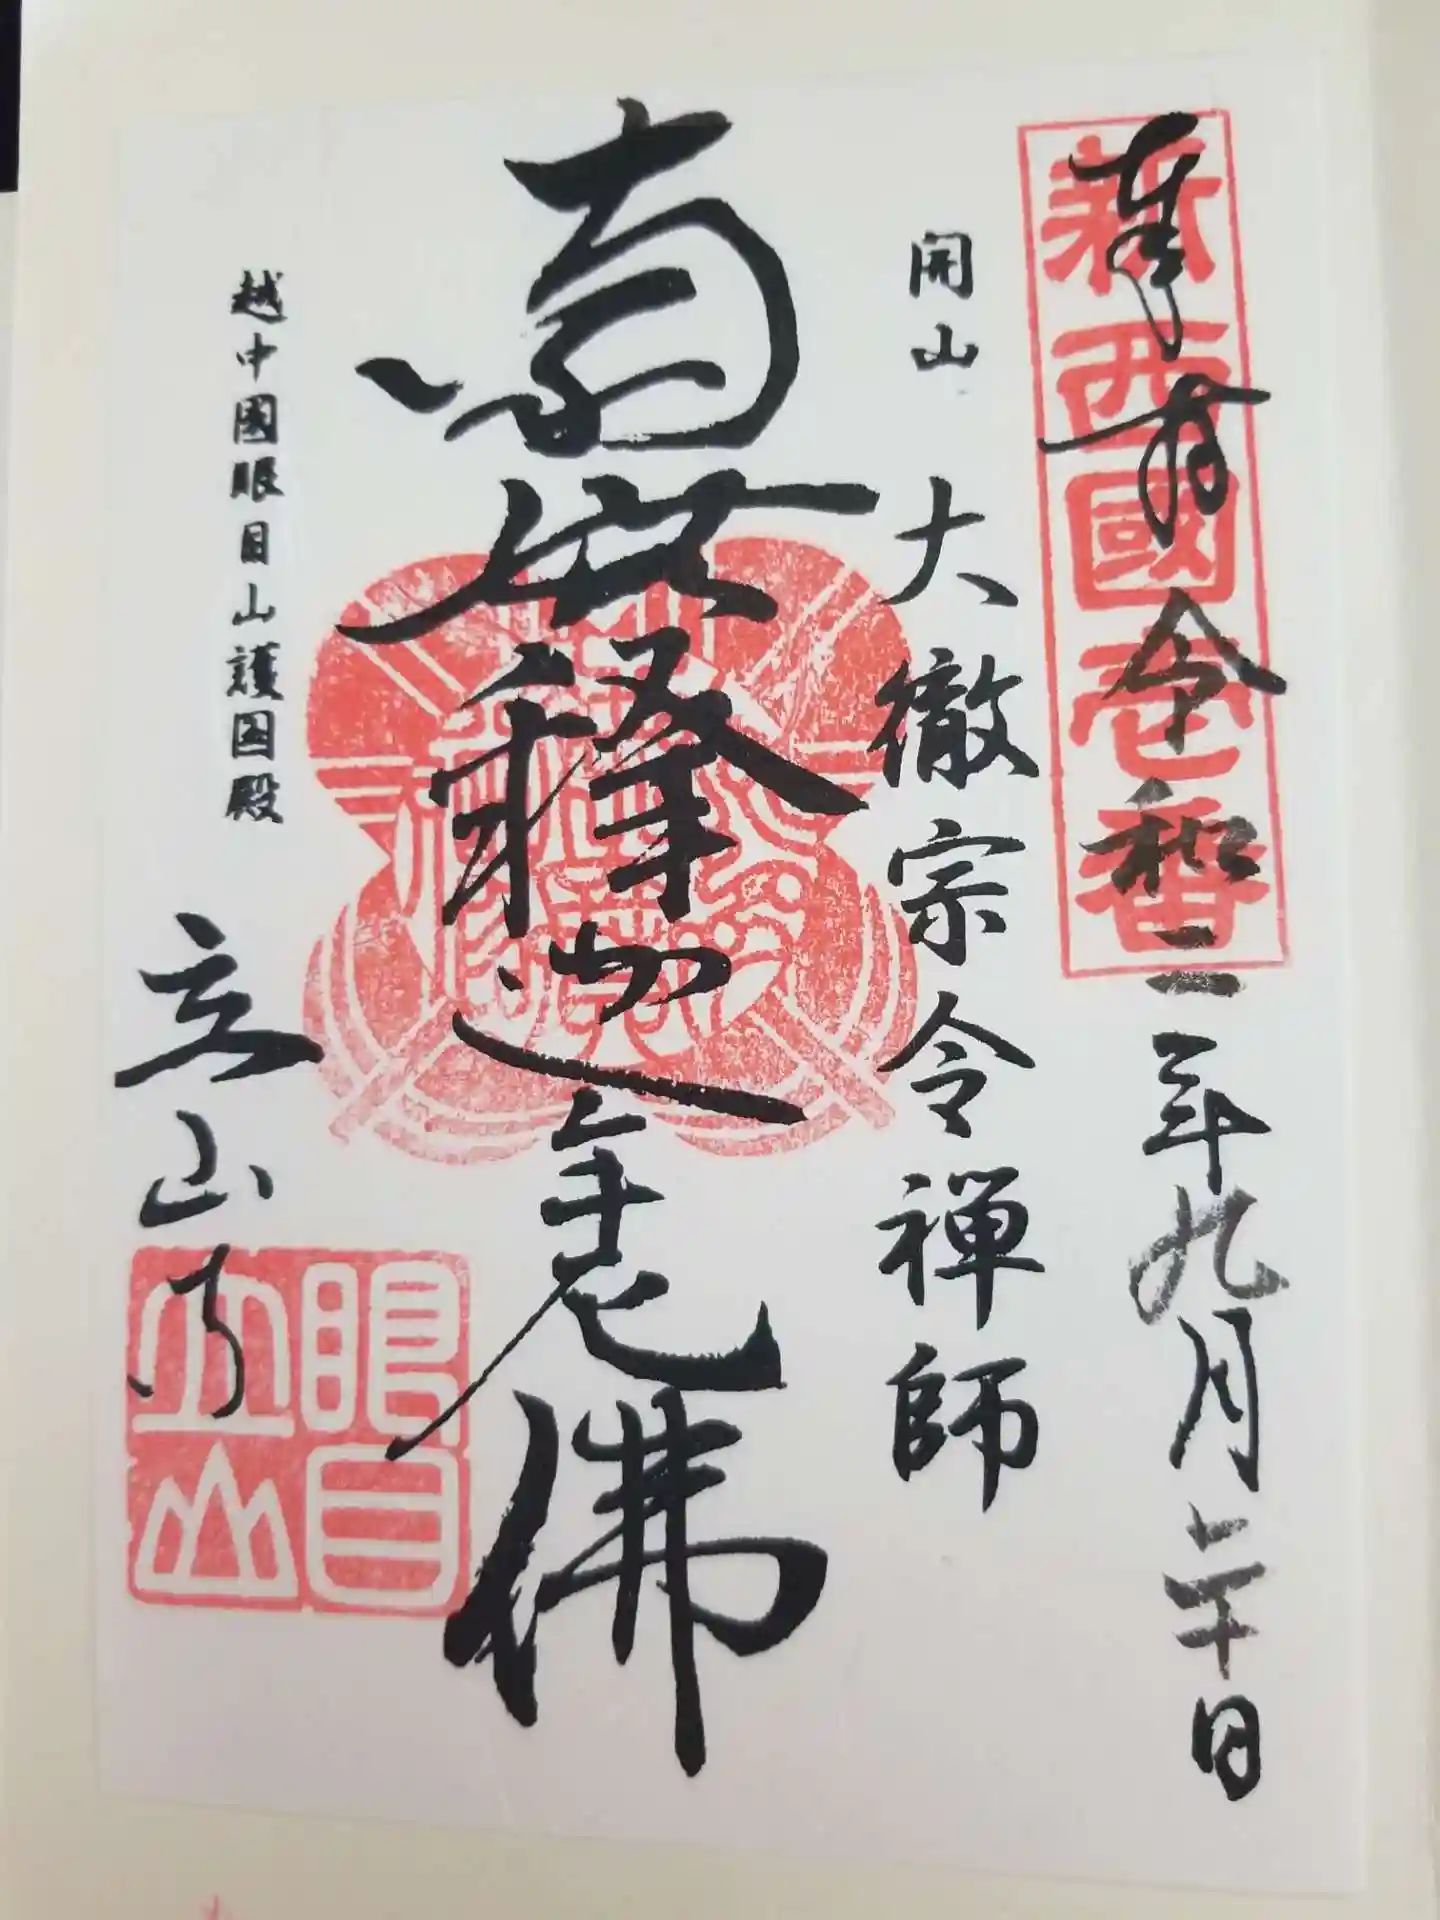 奉拝 令和二年九月二十日
新西國壱番
開山 大徹宗令禅師
南無釋迦牟尼佛
越中國眼目山護国殿
立山寺
眼目
立山